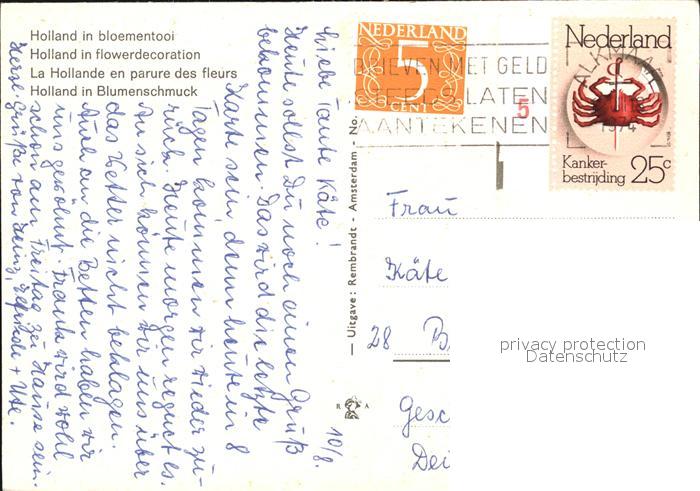 Holland in bloementooi
Holland in flowerdecoration
La Hollande en parure des fleurs
Holland in Blumenschmuck
10/8.
Liebe Tante Käte!
Heute sollst Du noch einen Gruß
bekommen. Das wird die letzte
Karte sein, denn heute in 8
Tagen kommen wir wieder zu-
rück. Heute morgen regnet es.
An sich können wir uns über
das Wetter nicht beklagen.
Auch an die Betten haben wir
uns gewöhnt. Frank wird wohl
schon am Freitag zu Hause sein.
Herzl. Grüße von Heinz, + Ute.
— Uitgave: Rembrandt - Amsterdam - No.
R A
NEDERLAND
5
CENT
BRIEVEN MET GELD
LATEN
AANTEKENEN
5
ALKMAAR
1974
Nederland
Kanker-
bestrijding
25c
Frau
Käte
28 B
Gesc
Dei
privacy protection
Datenschutz